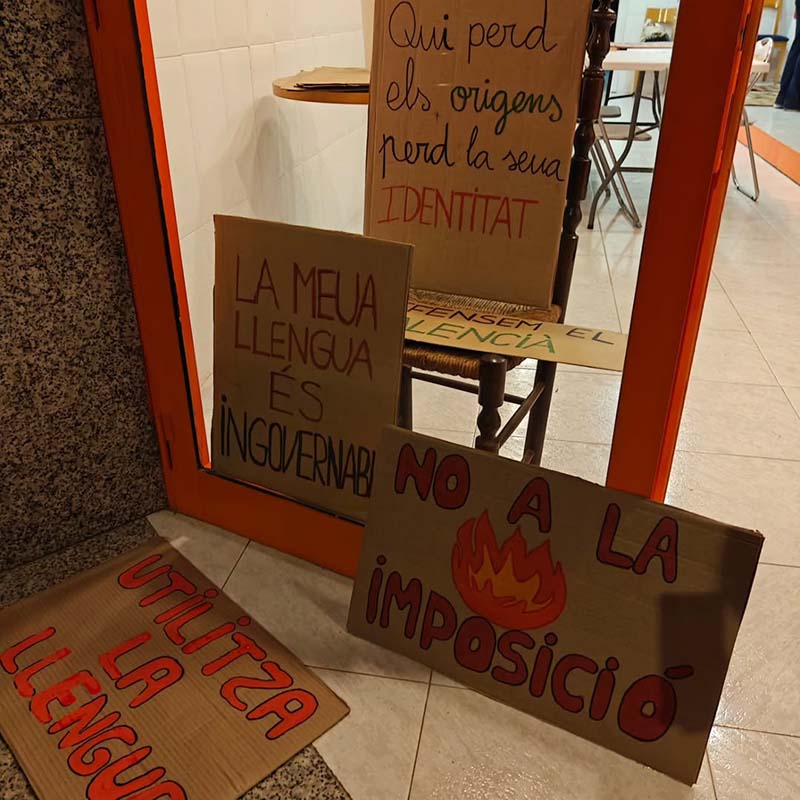 Qui perd
els origens
perd la seua
IDENTITAT
LA MEUA
LLENGUA
ÉS
INGOVERNABL
FENSEM EL
LENCIÀ
NO A LA
IMPOSICIÓ
UTILITZA
LA
LLENGUA